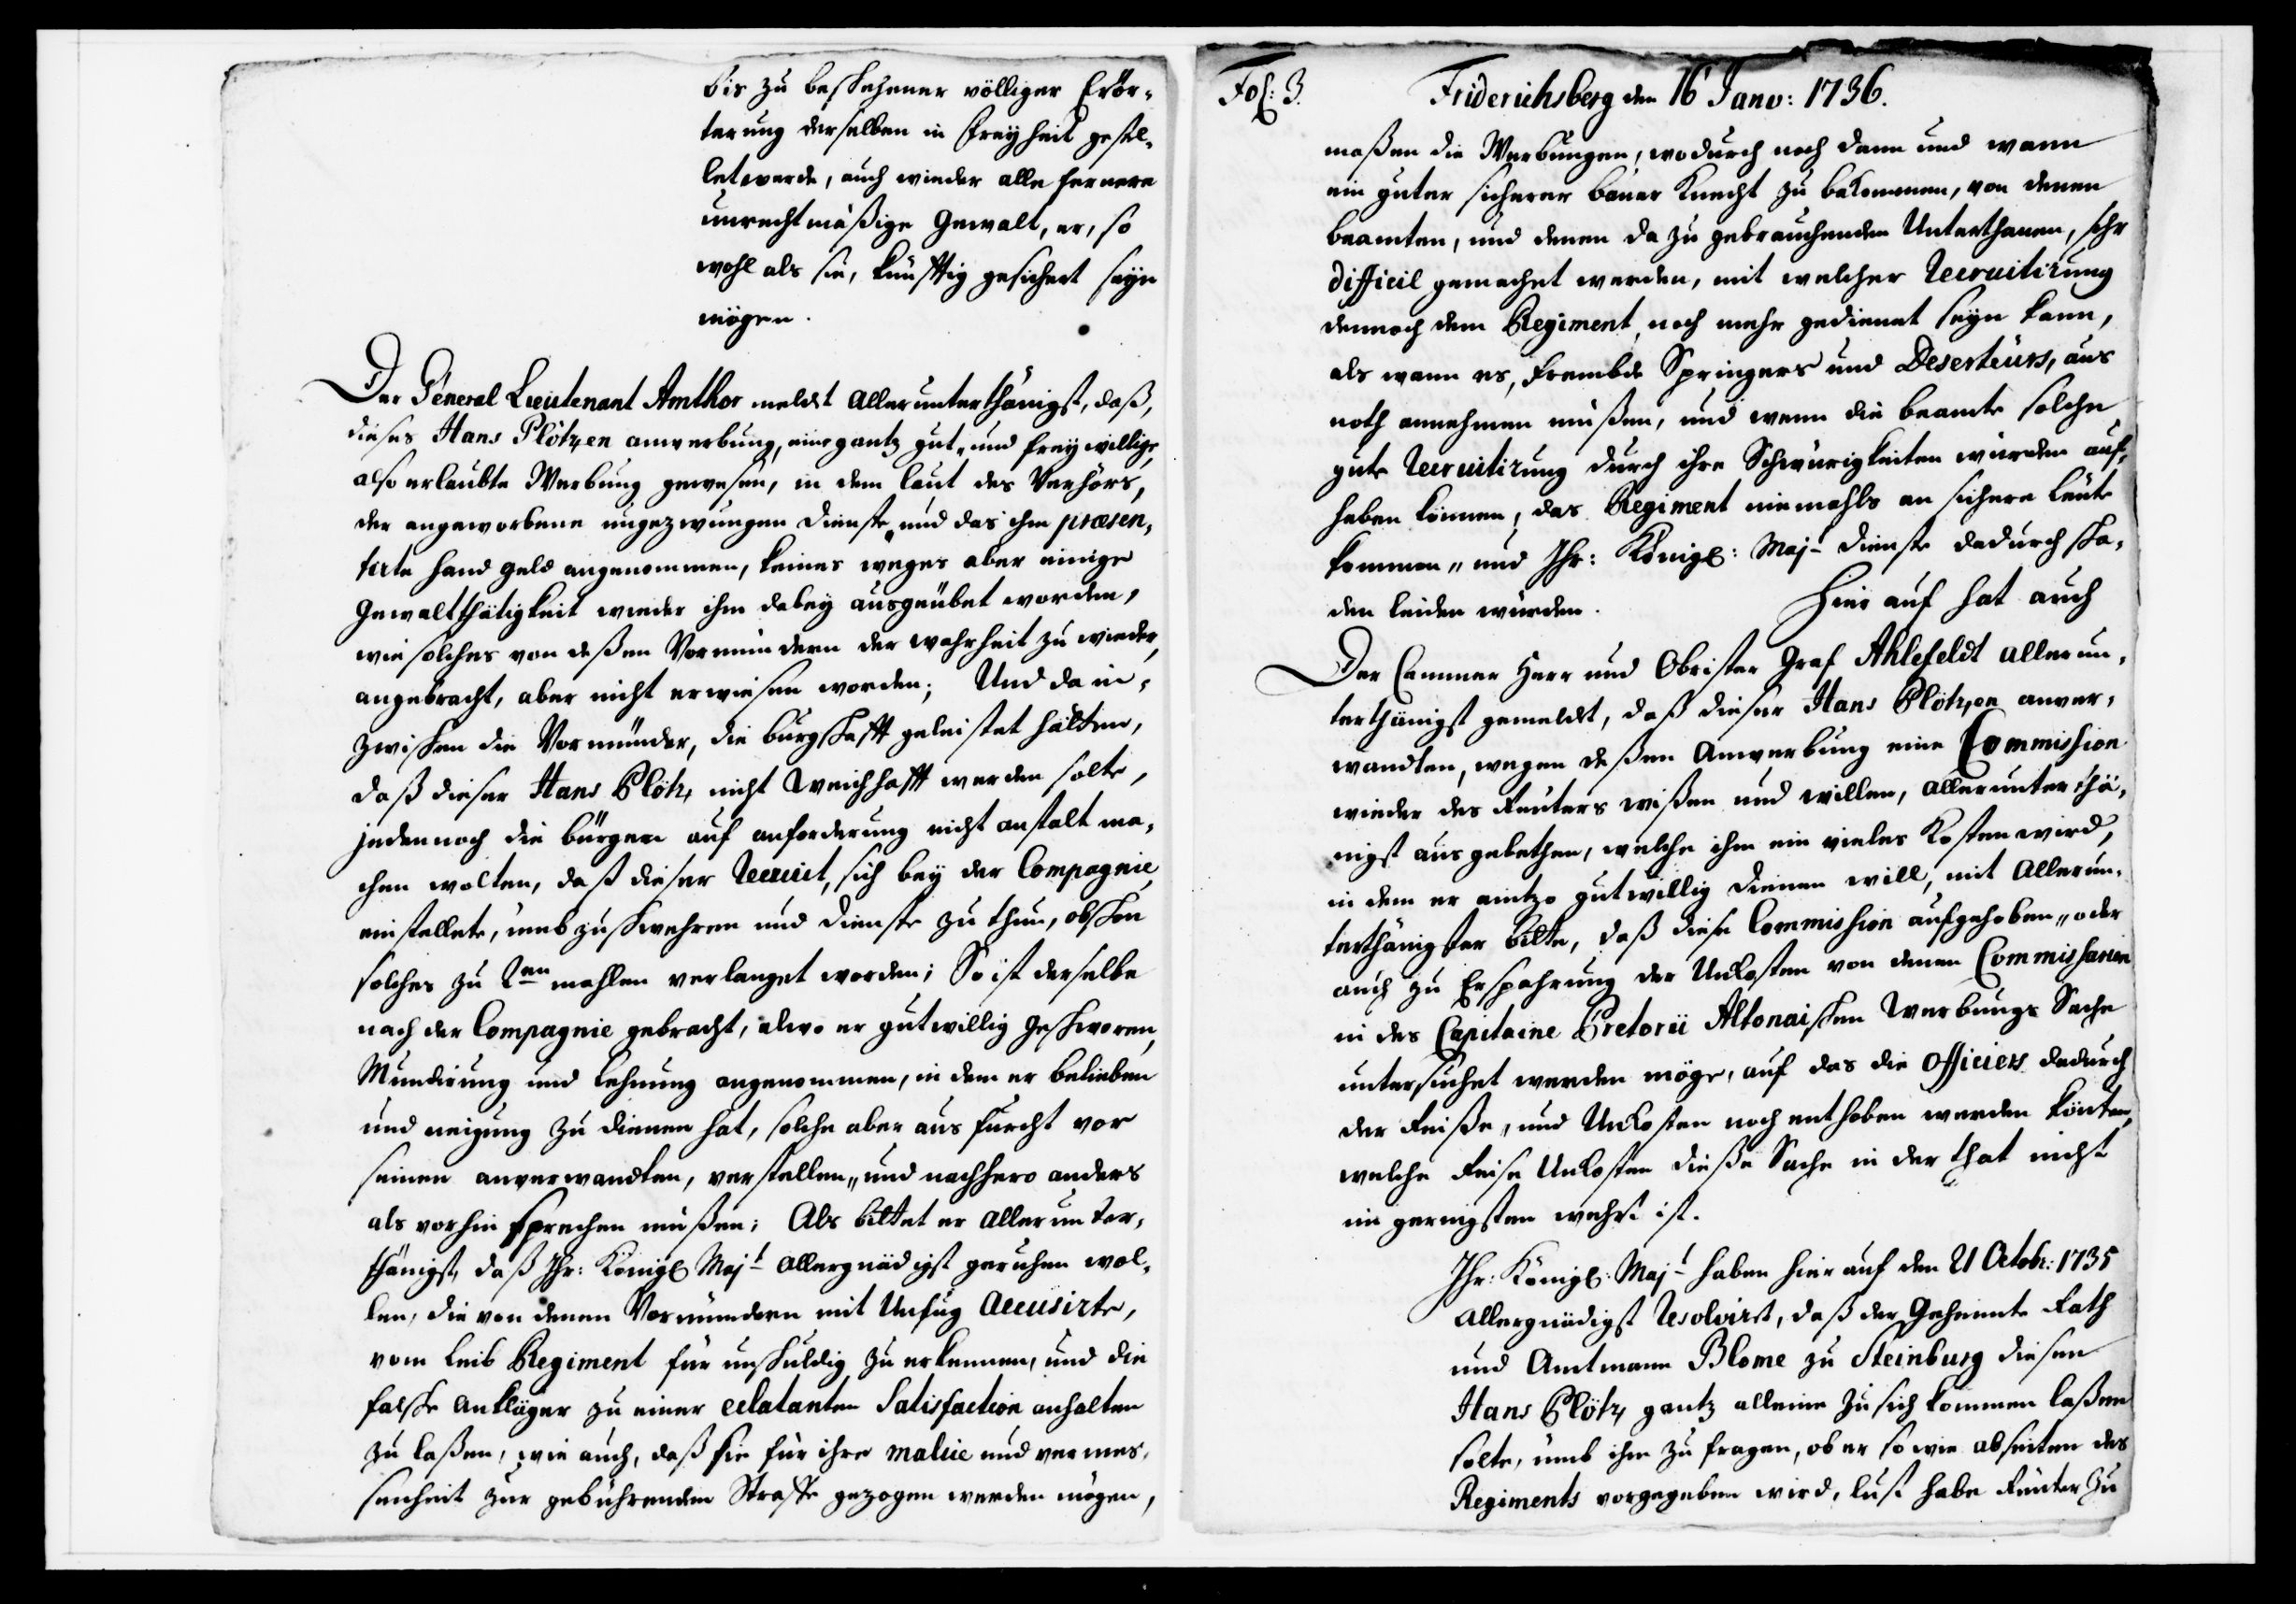 bis zu beschehener völliger Erör-
terung derselben in Freyheit gestel-
let werde, auch wieder alle fernere
unrechtmäßige Gewalt, er, so
wohl als sie, künfftig gesichert seyn
mögen.
Der General Lieutenant Amthor meldet allerunterthänigst, daß,
dieses Hans Plötzen anwerbung, eine gantz gut- und freywillige,
also erlaubte Werbung gewesen, in dem laut des Verhörs,
der angeworbene ungezwungen Dienste und das ihm præsen-
tirte hand geld angenommen, keines weges aber einige
Gewaltthätigkeit wieder ihm dabey ausgeübet worden,
wie solches von deßen Vormündern der wahrheit zu wieder,
angebracht, aber nicht erwiesen worden; Und da in-
zwischen die Vormünder, die bürgschafft geleistet hätten,
daß dieser Hans Plötz, nicht weichhafft werden solte,
jedennoch die bürgen auf anforderung nicht anstalt ma-
chen wolten, daß dieser Recruit, sich bey der Compagnie
einstellete, umb zu schwehren und Dienste zu thun, obschon
solches zu 2en mahlen verlanget worden; So ist derselbe
nach der Compagnie gebracht, alwo er gutwillig geschworen,
Mundirung und lehnung angenommen, in dem er belieben
und neigung zu dienen hat, solche aber aus furcht vor
seinen anverwandten, verstellen, und nachhero anders
als vorhin sprechen müßen; Als bittet er allerunter-
thänigst, daß Ihr: Königl Majt allergnädigst geruhen wol-
len, die von denen Vormündern mit Unfug accusirte,
vom Leib Regiment für unschuldig zu erkennen, und die
falsche Ankläger zu einer eclatanten Satisfaction anhalten
zu laßen, wie auch, daß sie für ihre malice und vermes-
senheit zur gebührenden Straffe gezogen werden mögen,
Fol: 3.
Friderichsberg den 16 Janv: 1736.
maßen die Werbungen, wodurch noch dann und wann
ein guter sicherer bauer Knecht zu bekommen, von denen
beamten, und denen da zu gebrauchenden Unterthanen, sehr
difficil gemachet werden, mit welcher Recruitirung
dennoch dem Regiment noch mehr gedienet seyn kann,
als wann es, frembde Springers und Deserteurs, aus
noth annehmen müßen, und wenn die beamte solche
gute Recruitirung durch ihre Schwürigkeiten würden auf-
haben können, das Regiment niemahls an sichere leute
kommen, und Ihr: Königl: Majt Dienste dadurch scha-
den leiden würden. Hier auf hat auch
Der Cammer Herr und Obrister Graf Ahlefeldt allerun-
terthänigst gemeldet, daß dieser Hans Plötzen anver-
wandten, wegen deßen Anwerbung eine Commission
wieder des Reuters wißen und willen, allerunterthä-
nigst ausgebethen, welche ihm ein vieles Kosten wird,
in dem er anitzo gutwillig dienen will, mit allerun-
terthänigster bitte, daß diese Commission aufgehoben, oder
auch zu Erspahrung der Unkosten von denen Commissarien
in des Capitaine Pretorii Altonaischen Werbungs Sache
untersuchet werden möge, auf das die Officiers dadurch
der Reise, und Unkosten noch enthoben werden könten,
welche Reise Unkosten dieße Sache in der that nicht
im geringsten wehrt ist.
Ihr: Königl: Majt haben hier auf den 21 Octobr: 1735
allergnädigst resolvirt, daß der Geheimte Rath
und Amtmann Blome zu Steinburg diesen
Hans Plötz gantz alleine zu sich kommen laßen
solte, umb ihm zu fragen, ob er so wie abseiten des
Regiments vorgegeben wird, lust habe Reuter zu